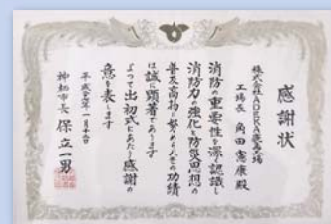 感謝状
株式会社ADEKA鹿島工場
工場長 角田憲康殿
消防の重要性を深く認識し
消防力の強化と防災思想の
普及高揚に努められその功績
は誠に顕著であります
よって出初式にあたり感謝の
意を表します
神栖市長 保立一男